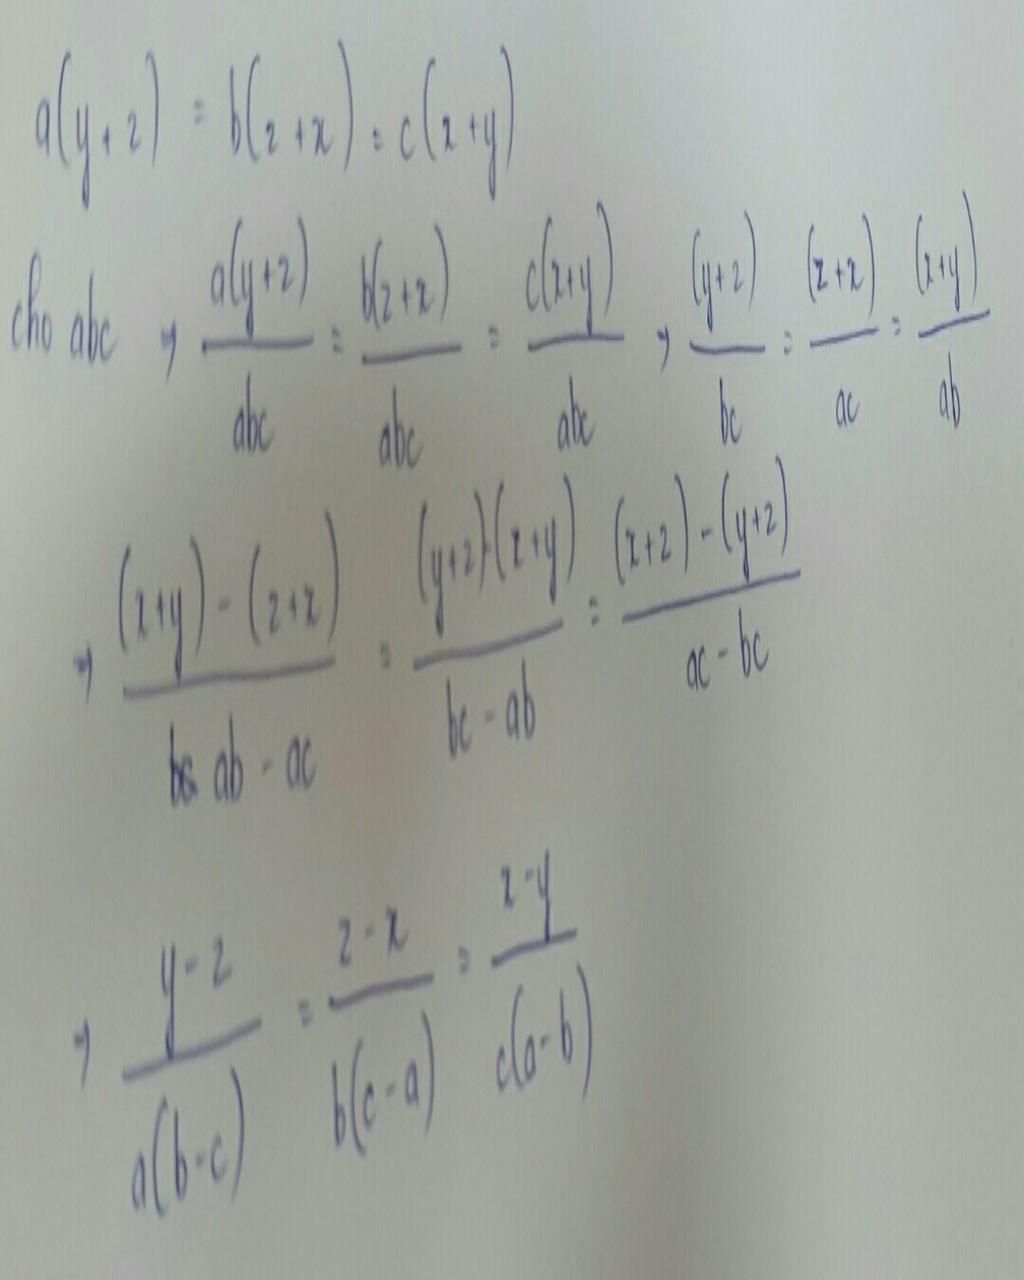 a(y+z) = b(z+x) = c(x+y)
cho abc => a(y+z)/abc = b(z+x)/abc = c(x+y)/abc => (y+z)/bc = (z+x)/ac = (x+y)/ab
=> (x+y)-(z+x)/ab-ac = (y+z)-(x+y)/bc-ab = (x+z)-(y+z)/ac-bc
=> y-z/a(b-c) = z-x/b(c-a) = x-y/c(a-b)